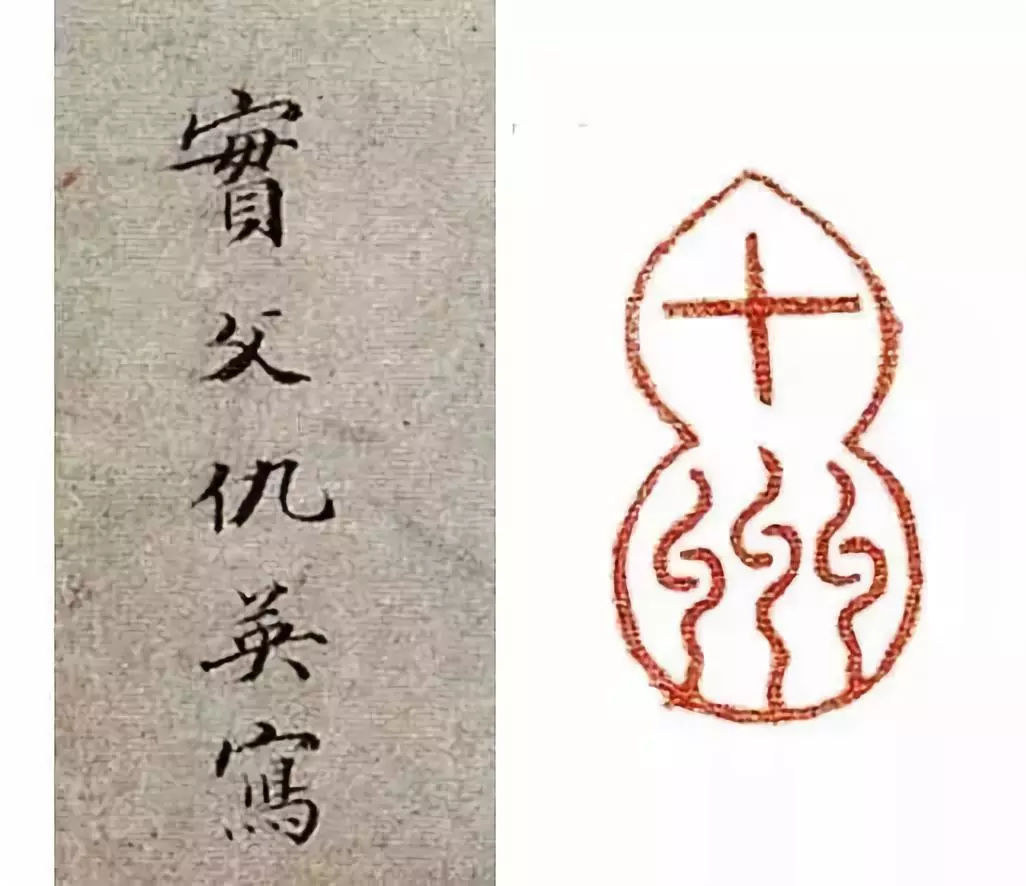 實父仇英寫
十州